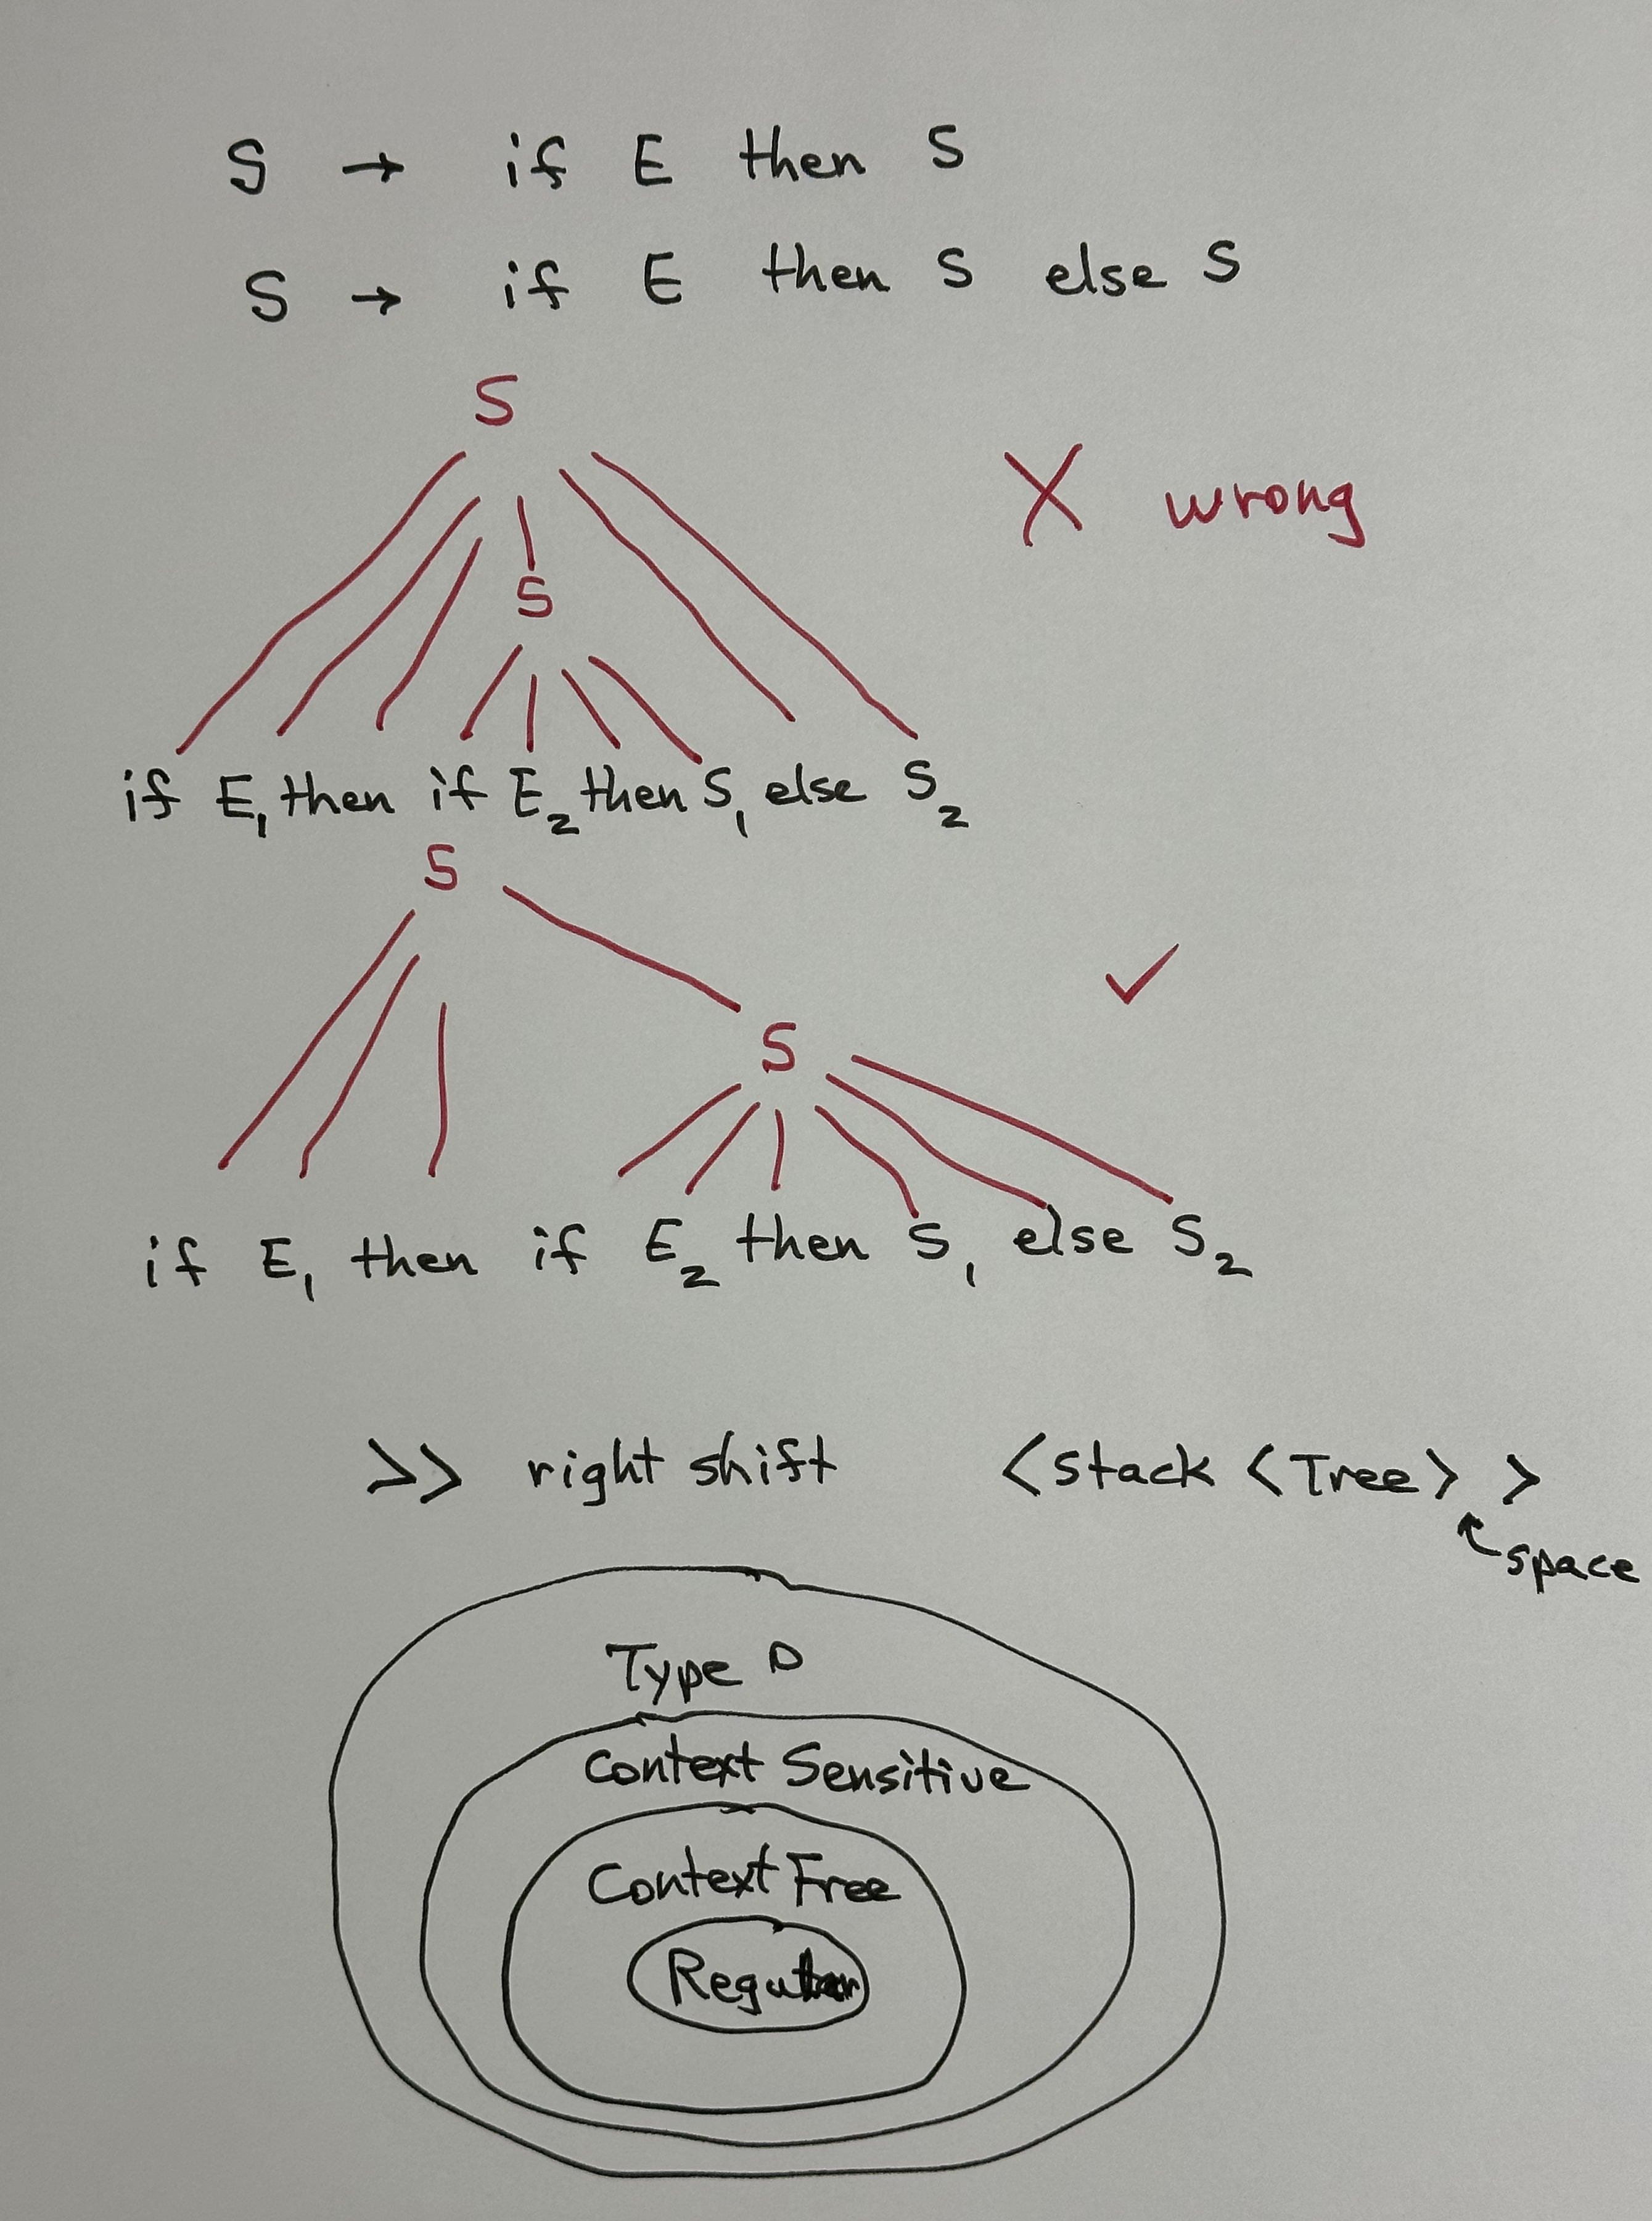 S → if E then S
S → if E then S else S
S
X wrong
S
if E₁ then if E₂ then S₁ else S₂
S
✓
S
if E₁ then if E₂ then S₁ else S₂
>> right shift <stack <Tree> >
space
Type 0
Context Sensitive
Context Free
Regular